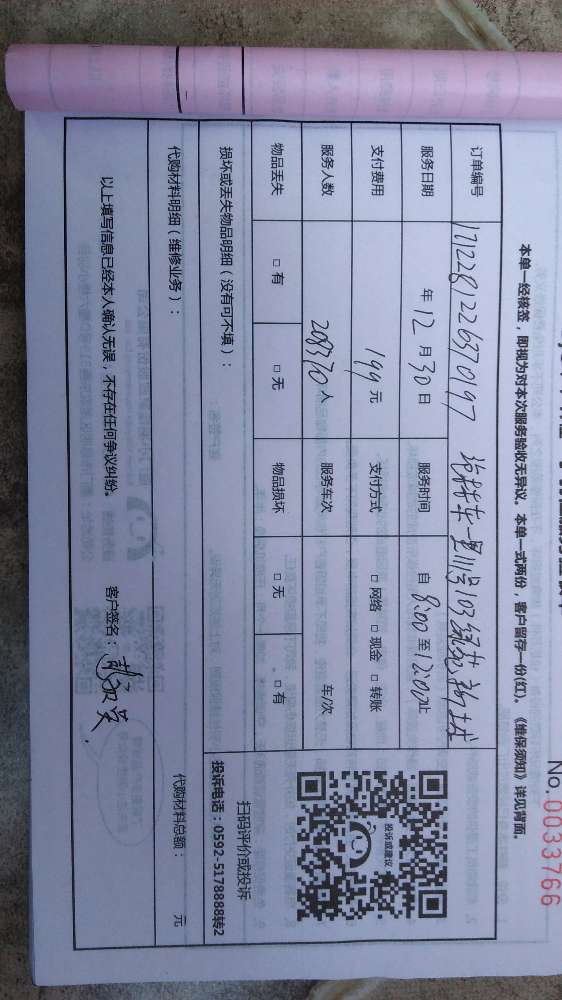 No.0033766
本单一经核签，即视为对本次服务验收无异议。本单一式两份，客户留存一份(红)。《维保须知》详见背面。
订单编号 1712281226370197
服务日期 年 12 月 30 日 服务时间 自 8:00 至 12:00 止
支付费用 199 元 支付方式 □ 网络 □ 现金 □ 转账
服务人数 208370 人 服务车次 车/次
物品丢失 □ 有 □ 无 物品损坏 □ 无 □ 有
投诉或建议
扫码评价或投诉
投诉电话：0592-5178888转2
损坏或丢失物品明细（没有可不填）：
代购材料明细（维修业务）： 代购材料总额： 元
以上填写信息已经本人确认无误，不存在任何争议纠纷。 客户签名：